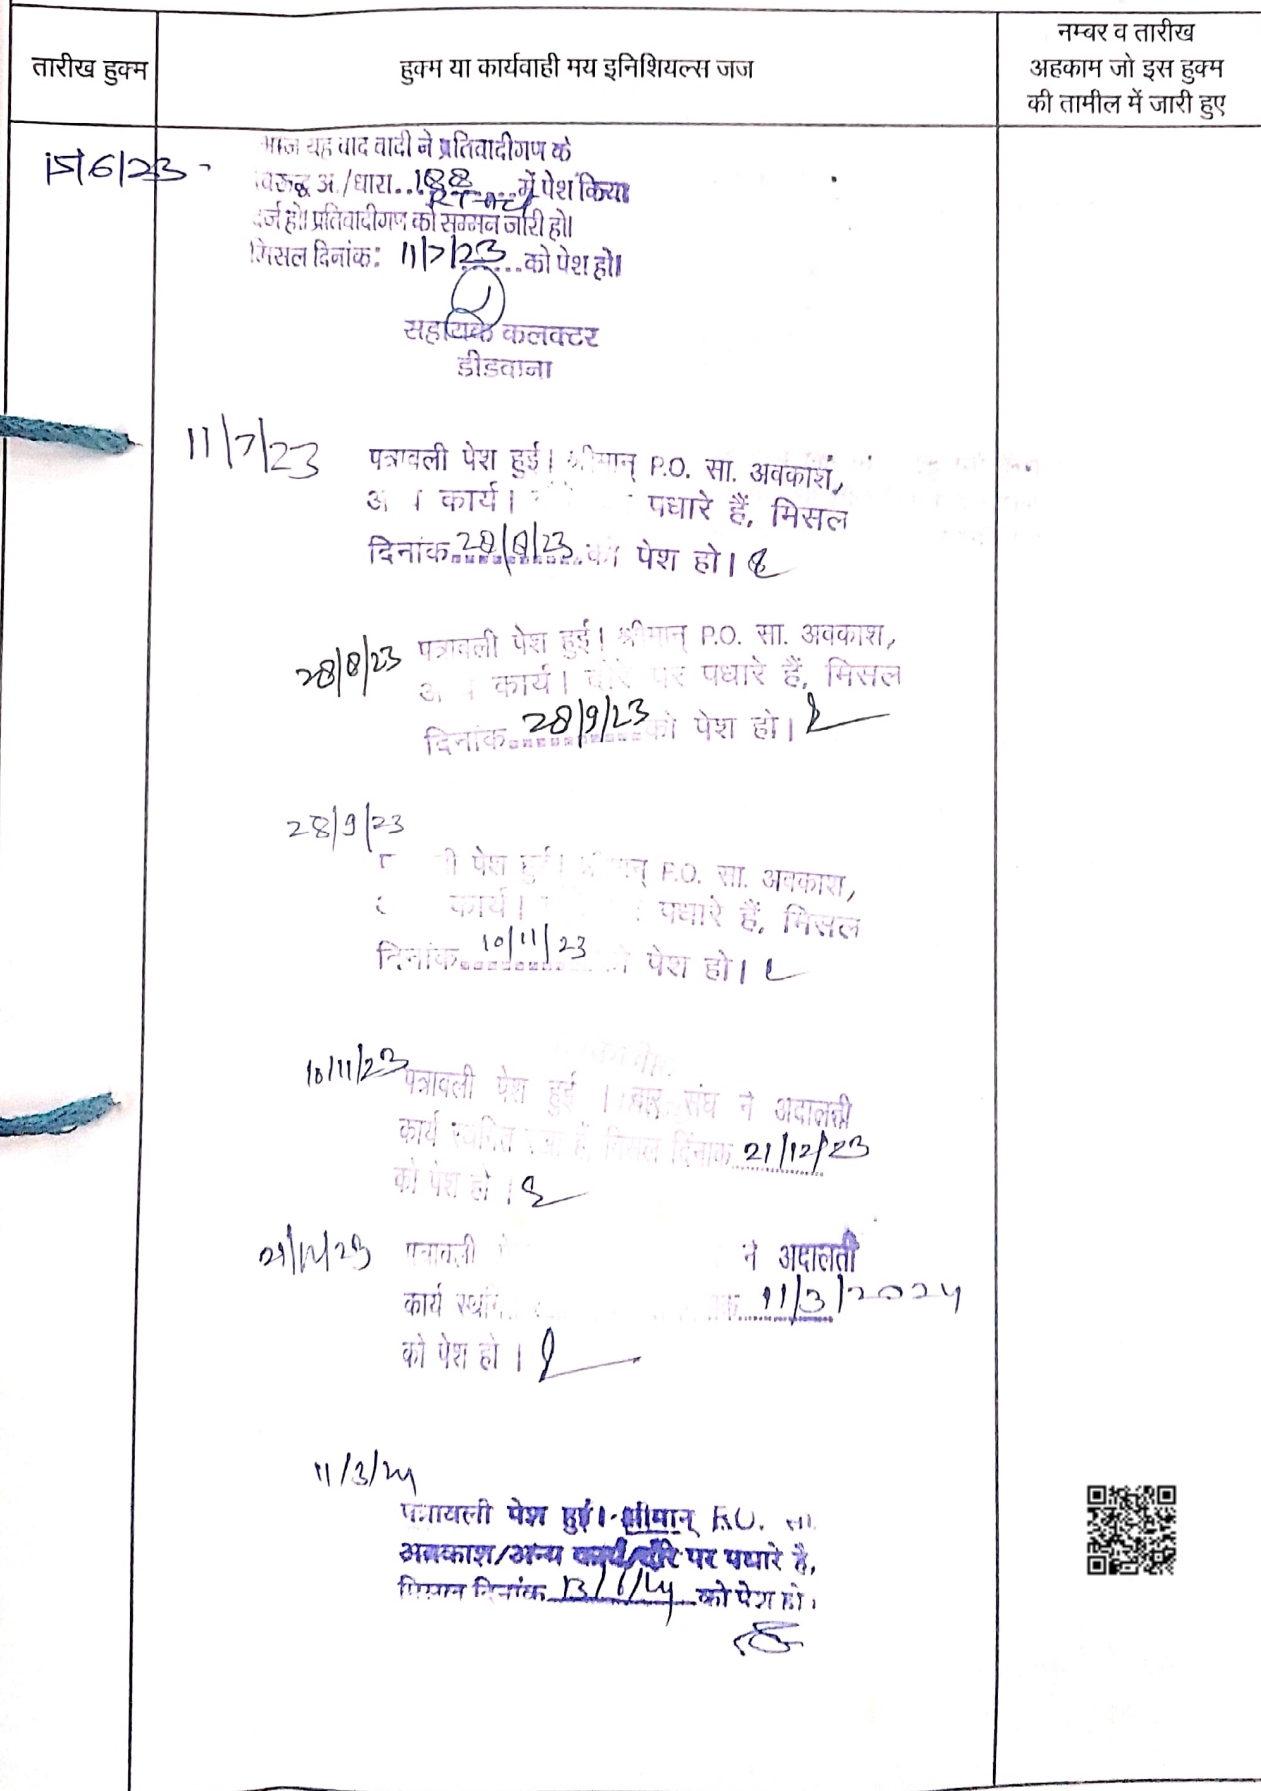 तारीख हुक्म
हुक्म या कार्यवाही मय इनिशियल्स जज
नम्बर व तारीख
अहकाम जो इस हुक्म
की तामील में जारी हुए
15/6/23
आज यह वाद वादी ने प्रतिवादीगण के
विरूद्ध अं./धारा..188.....में पेश किया
RT-Act
दर्ज हो। प्रतिवादीगण को सम्मन जारी हो।
मिसल दिनांक: 11/7/23....को पेश हो।
सहायक कलक्टर
डीडवाना
11/7/23
पत्रावली पेश हुई। श्रीमान् P.O. सा. अवकाश,
कार्य। पधारे हैं, मिसल
दिनांक 28/8/23 को पेश हो।
28/8/23
पत्रावली पेश हुई। श्रीमान् P.O. सा. अवकाश,
कार्य। दौरे पर पधारे हैं, मिसल
दिनांक 28/9/23 को पेश हो।
28/9/23
पेश हुई। P.O. सा. अवकाश,
कार्य। पधारे हैं, मिसल
दिनांक 10/11/23 पेश हो।
10/11/23
पत्रावली पेश हुई । बार संघ ने अदालती
कार्य स्थगित रखा है, मिसल दिनांक 21/12/23
को पेश हो ।
21/12/23
पत्रावली ने अदालती
कार्य 11/3/2024
को पेश हो ।
11/3/24
पत्रावली पेश हुई। श्रीमान् P.O. सा.
अवकाश/अन्य कार्य/दौरे पर पधारे है,
दिनांक 13/6/24 को पेश हो।